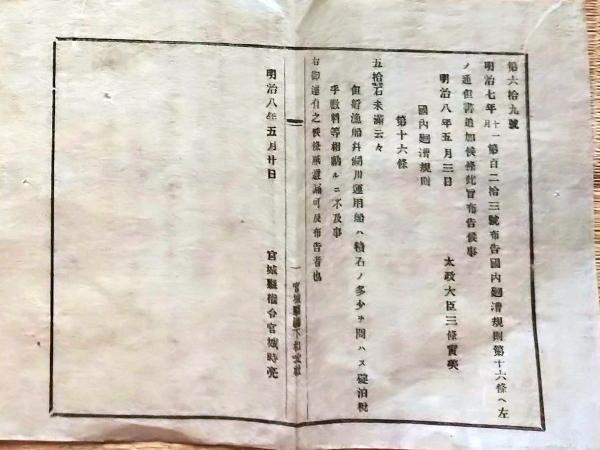 第六拾九號
明治七年十一月第百二拾三號布告國内廻漕規則第十六條ヘ左
ノ通但書追加候條此旨布告候事
明治八年五月三日
太政大臣三條實美
國内廻漕規則
第十六條
五拾石未滿云々
但漁船幷川運用船ハ積石ノ多少ヲ問ハス碇泊
手數料等相納ルニ不及事
右御達有之候條
可及布告者也
宮城縣
明治八年五月廿日
宮城縣權令宮城時亮